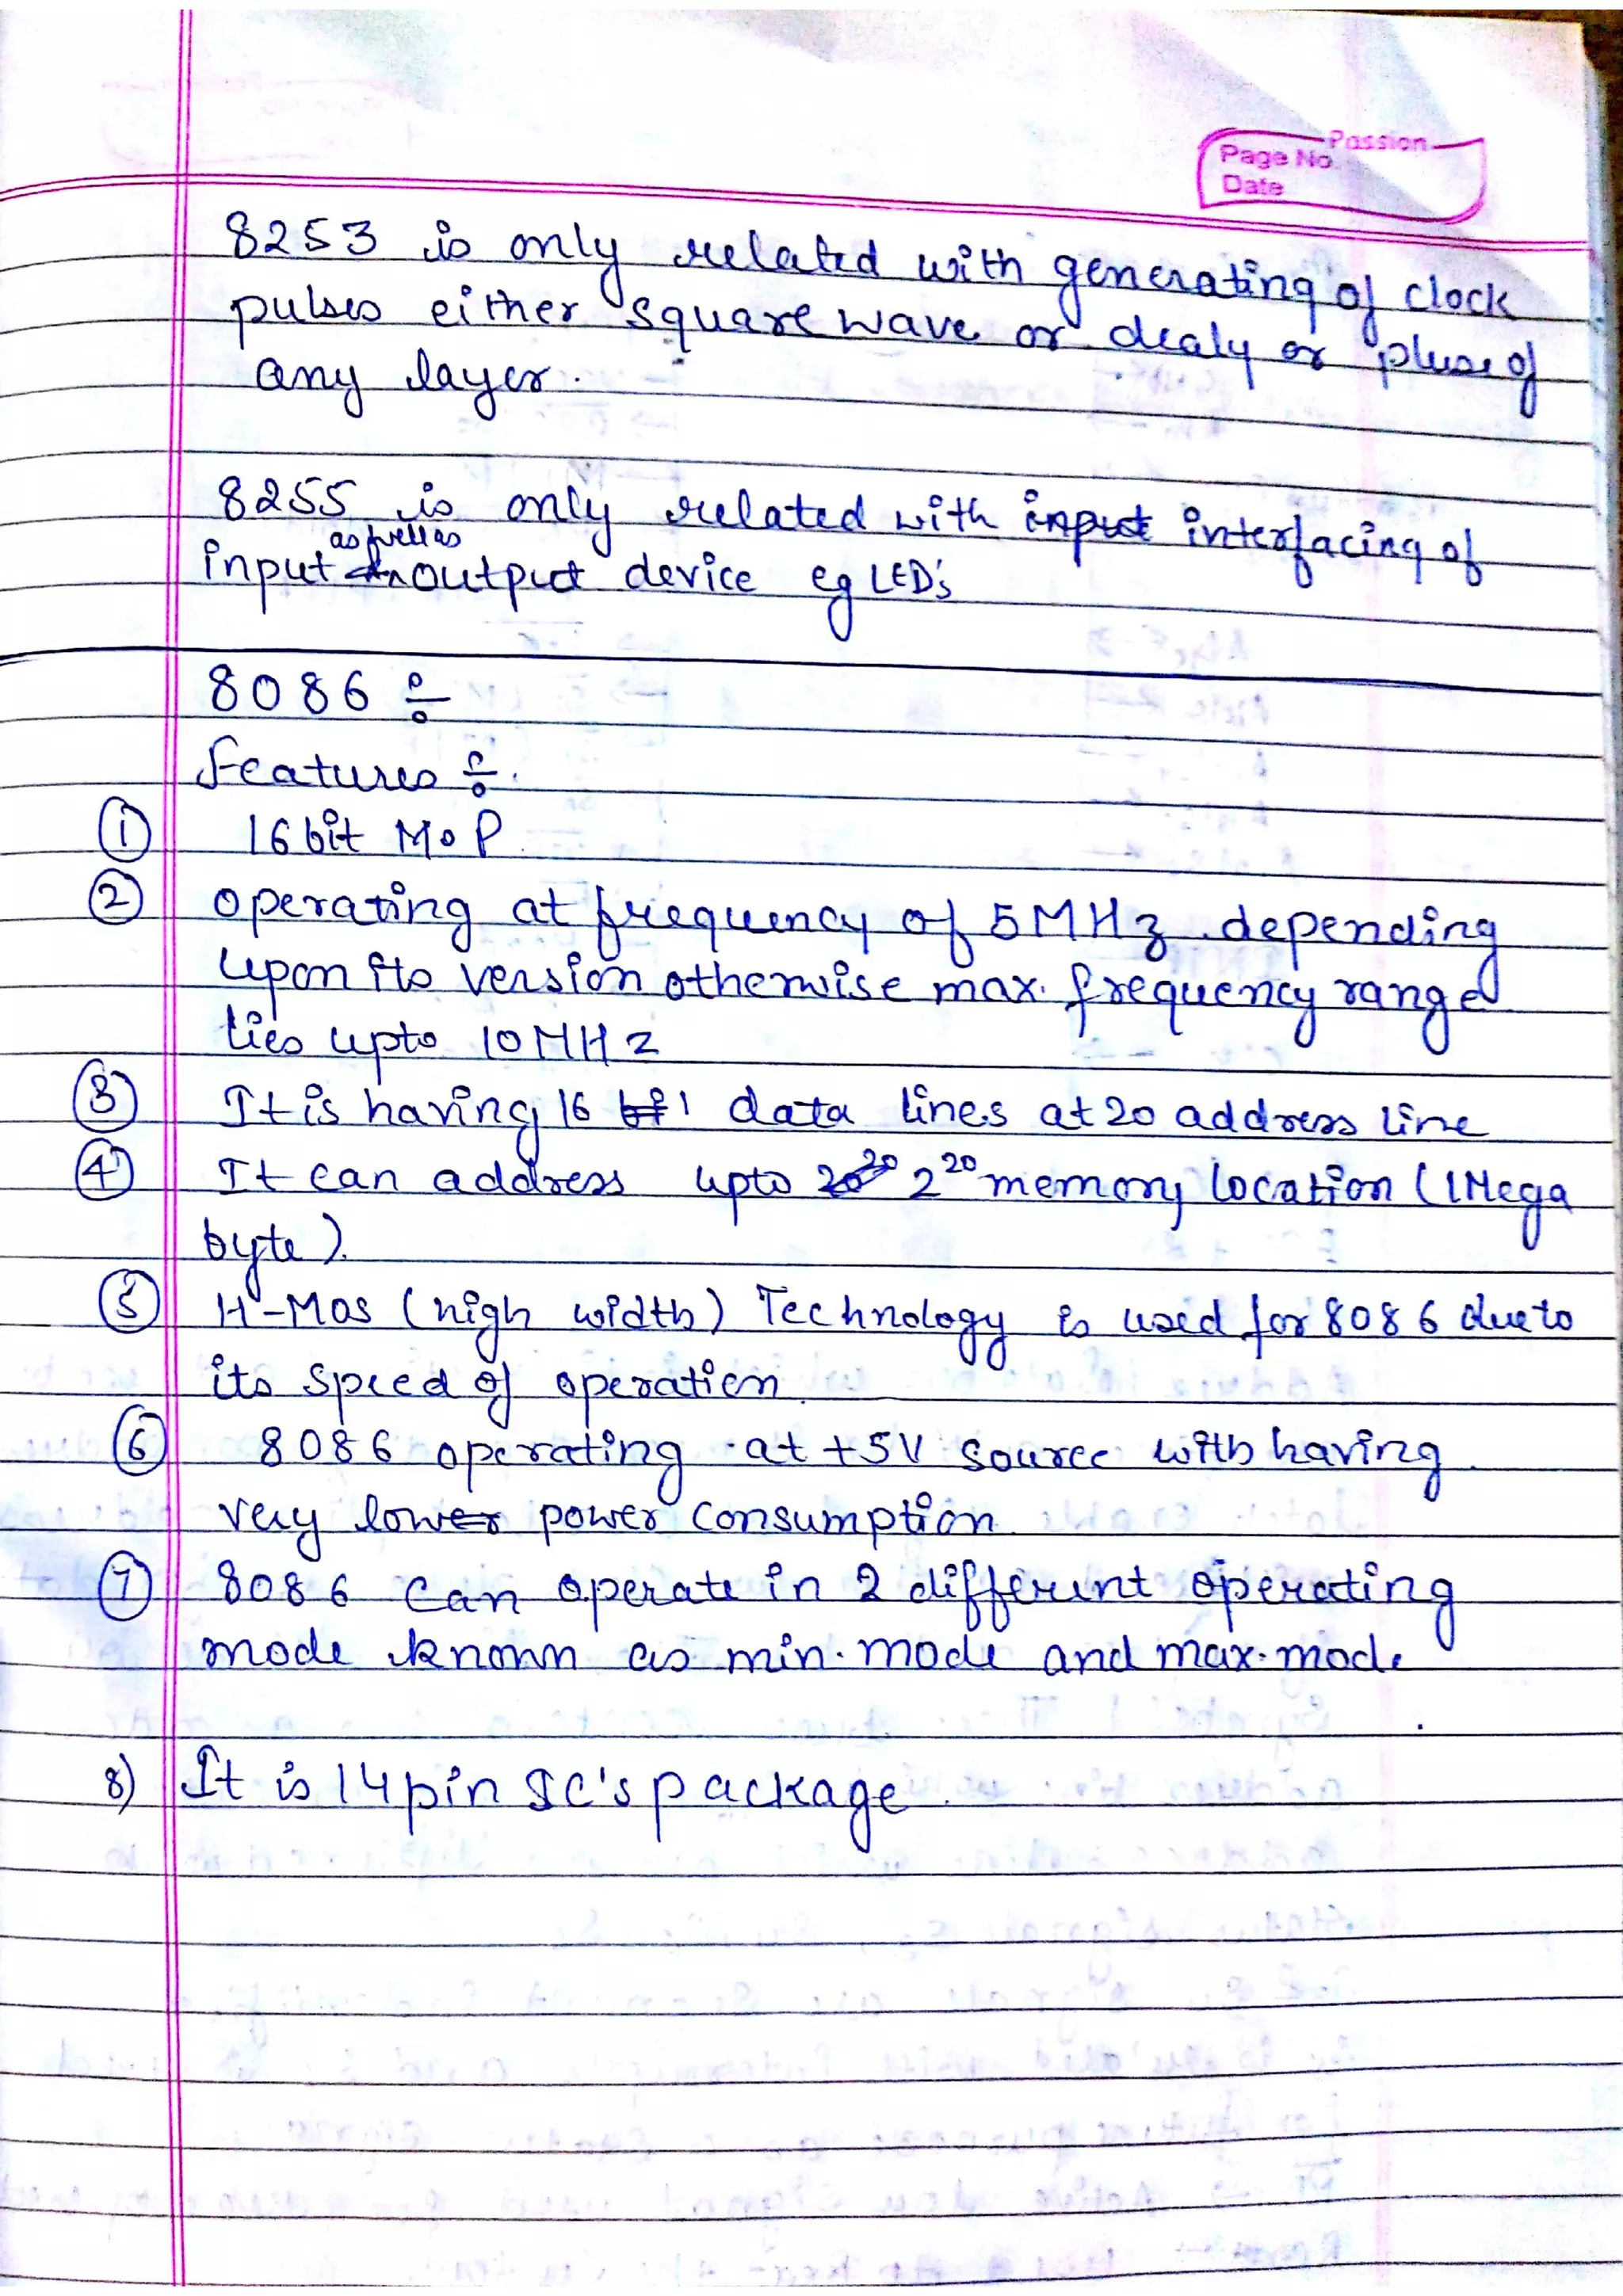 Passion
Page No.
Date
8253 is only related with generating of clock
pulses either square wave or dealy or pluse of
any layer.
8255 is only related with input interfacing of
as well as
input output device eg LED's
8086 ÷
Features ÷
① 16 bit MoP
② operating at frequency of 5MHz depending
upon its version otherwise max. frequency range
lies upto 10MHz
③ It is having 16 data lines at 20 address line
④ It can address upto 2²⁰ memory location (1Mega
byte).
⑤ H-MOS (high width) Technology is used for 8086 due to
its speed of operation
⑥ 8086 operating at +5V source with having
very low power consumption
⑦ 8086 can operate in 2 different operating
mode known as min. mode and max. mode
8) It is 14 pin IC's package.